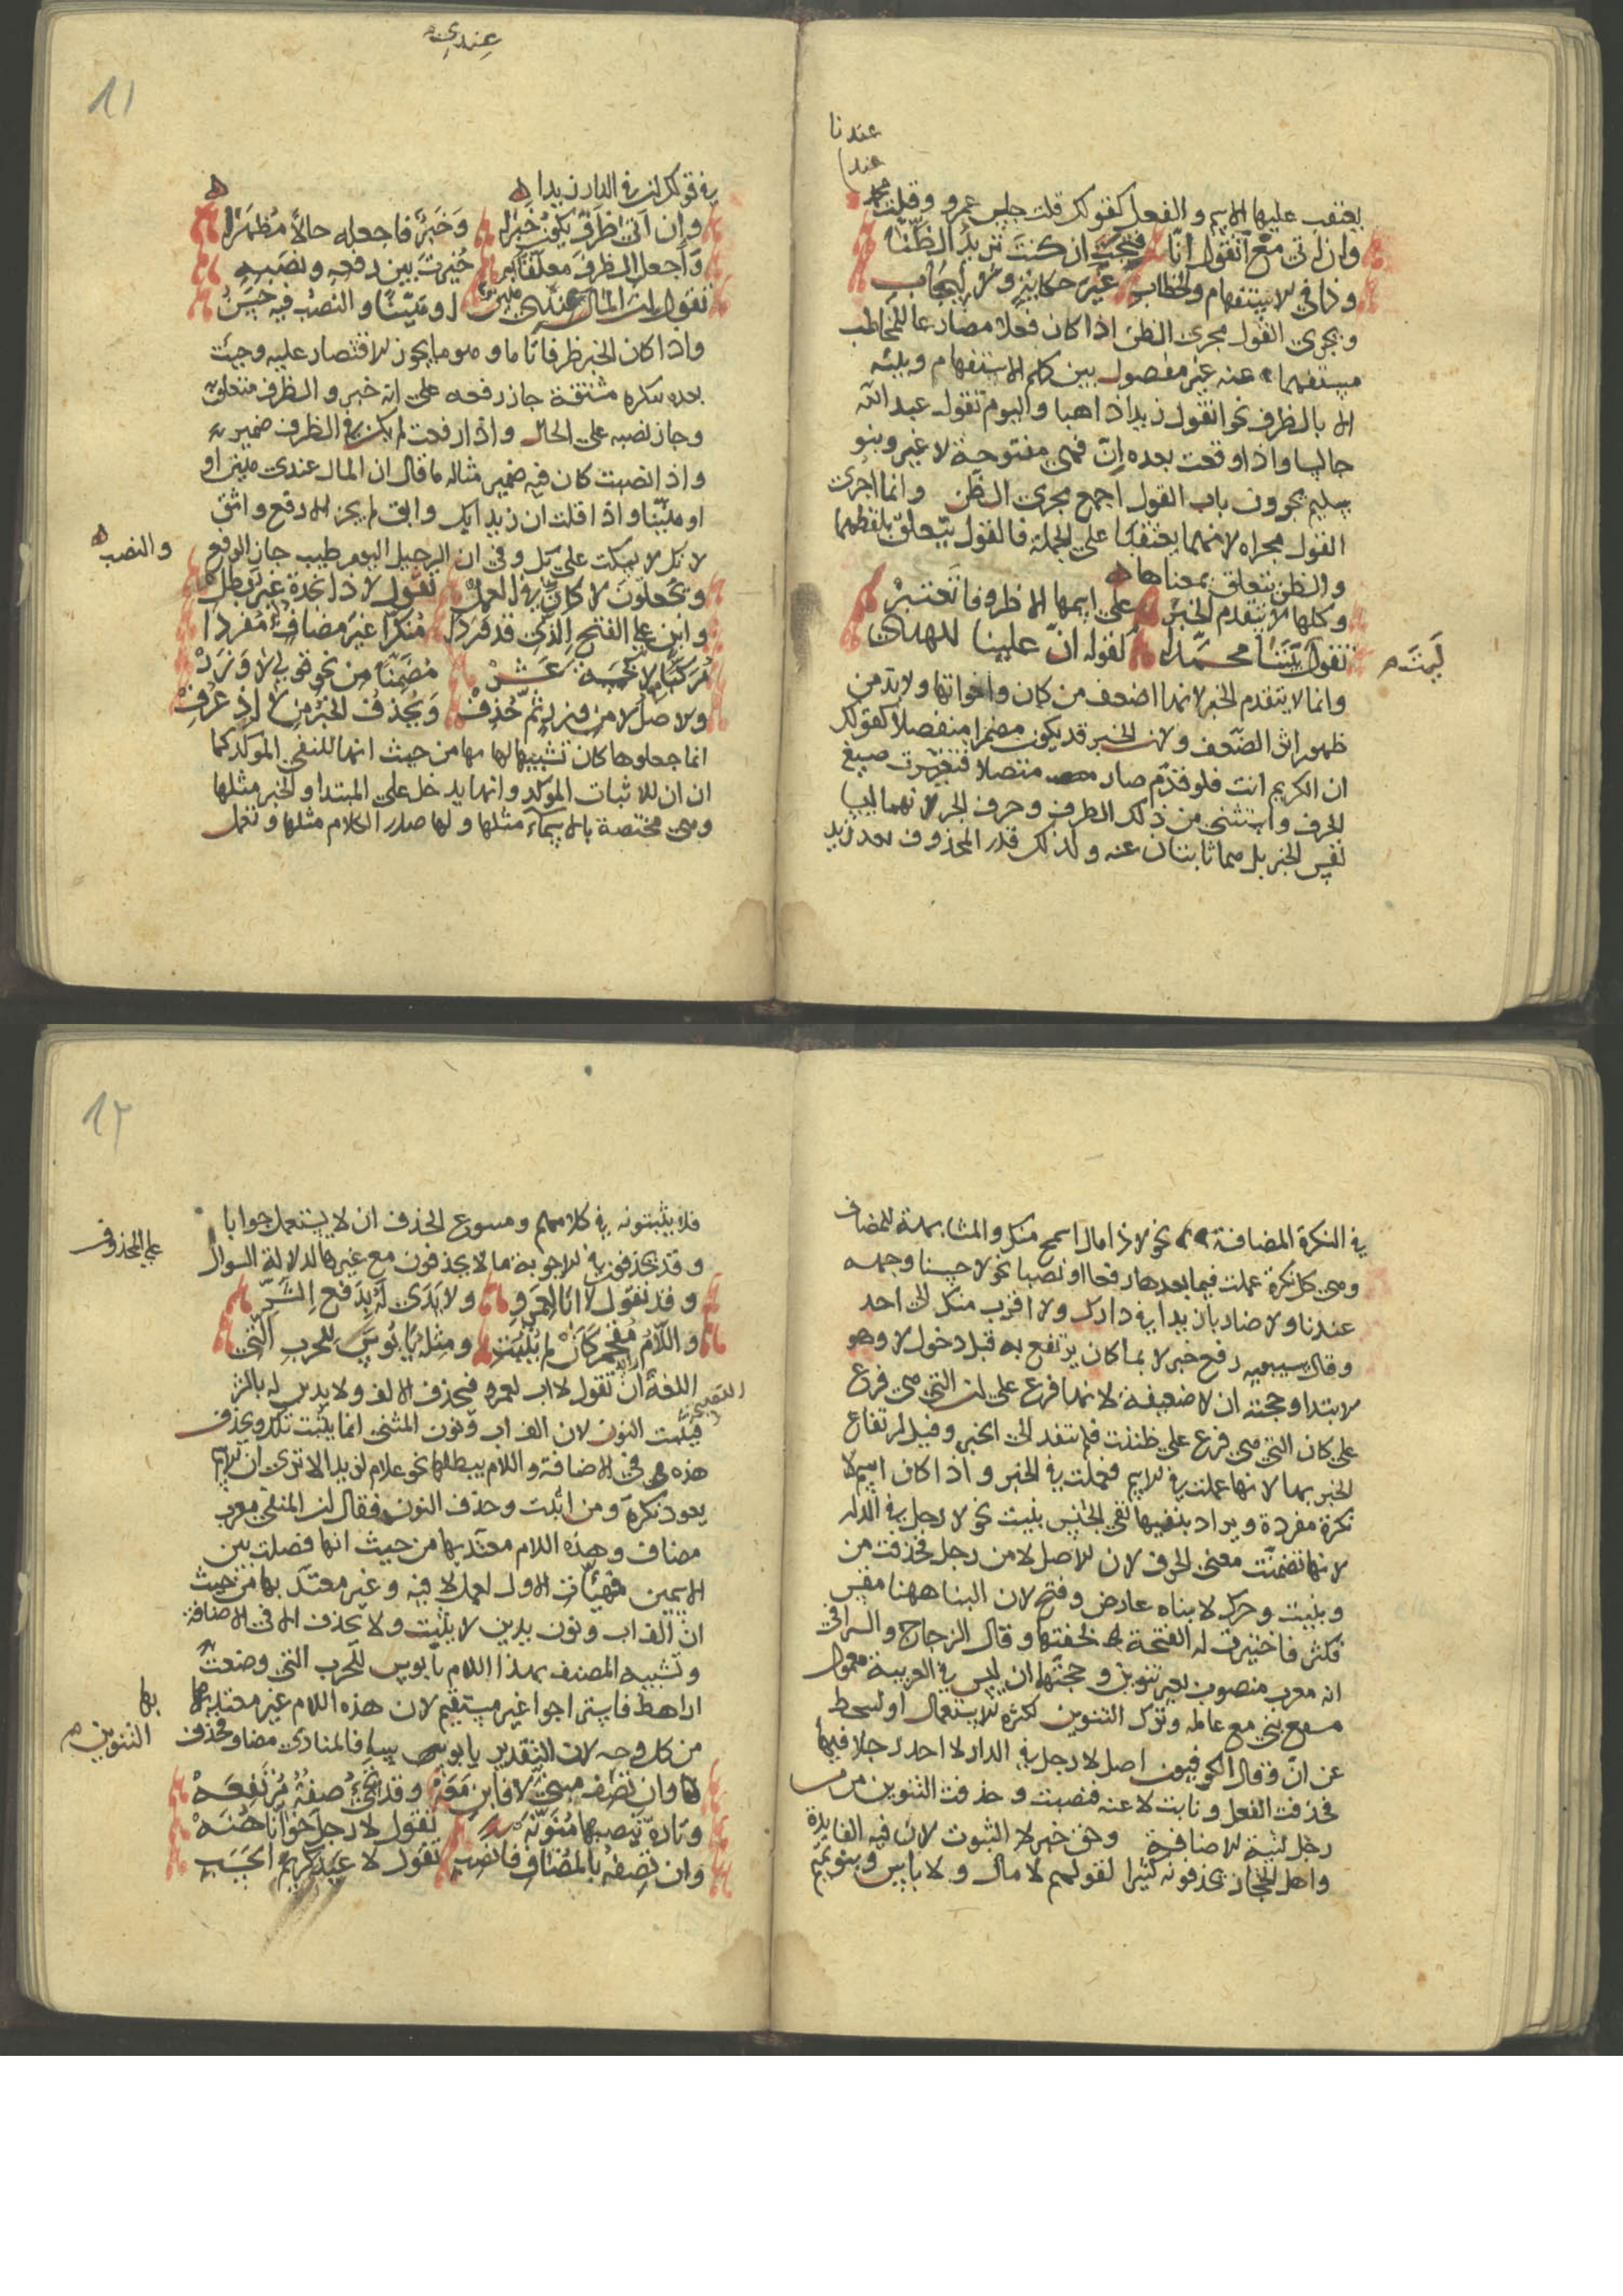 عندنا
عند
يعتقب عليها الاسم والفعل كقولك قلت جلس عمرو وقلت محمد
وان اتى مع أتقول أنّا فتحت ان كنت تريد الظنّا
وذا في الاستفهام والخطاب غير حكاية ولا ايجاب
ويجرى القول مجرى الظن اذا كان فعلا مضارعا للمخاطب
مستفهما عنه غير مفصول بين كلم الاستفهام وبينه
الا بالظرف نحو اتقول زيدا ذاهبا واليوم تقول عبد الله
جالسا واذا وقعت بعده انّ فهي مفتوحة لا غير وبنو
سليم يجرون باب القول اجمع مجرى الظن وانما اجرى
القول مجراه لانهما يعتقبان على الجملة فالقول يتعلق بلفظهما
والظن يتعلق بمعناها
وكلها لا يتقدم الخبر على اسمها الا ظروفا تعتبر
تقول ثَمَّ محمدا كقوله انّ علينا للهدى
ليت ثم
وانما لا يتقدم الخبر لانها اضعف من كان واخواتها ولا بد من
ظهور اثر الضعف ولان الخبر قد يكون مضمرا منفصلا كقولك
ان الكريم انت فلو قدّم صار متصلا فتغيرت صيغ
الحرف واستثنى من ذلك الظرف وحرف الجر لانهما ليسا
نفس الخبر بل هما ثابتان عنه ولذلك قدر المحذوف بعد زيد
عندي
11
في قولك ان في الدار زيدا
وان اتى ظرف يكون خبرا وخبر فاجعله حالا مظهرا
واجعل الظرف معلقا به خيرت بين رفعه ونصبه
تقول ان المال عندي مبيّن او مبيّنا والنصب فيه حسن
واذا كان الخبر ظرفا تاما وهو ما يجوز الاقتصار عليه وجئت
بعده بنكرة مشتقة جاز رفعه على انه خبر والظرف متعلق
وجاز نصبه على الحال واذا رفعت لم يكن في الظرف ضمير
واذا نصبت كان فيه ضمير مثاله ما قال ان المال عندي مبين او
او مبيّنا واذا قلت ان زيدا بك واثق لم يجز الا رفع واثق
لانك لا تسكت على بك وفي ان الرحيل اليوم طيب جاز الرفع
والنصب
ويجعلون لا كانّ في العمل تقول لا ذا نجدة غير بطل
وابن على الفتح الذي قد فردا منكرا غير مضاف مفردا
مركبا كخمسة عشر مضمنا من نحو قولي لا وزر
والاصل لا من وزر ثم حذف ويحذف الخبر من لا اذ عرف
انما جعلوها كان تشبيها لها بها من حيث انها للنفى الموكد كما
ان ان للاثبات الموكد وانها يدخل على المبتدا والخبر مثلها
وهي مختصة بالاسماء مثلها ولها صدر الكلام مثلها وتعمل
في النكرة المضافة نحو لا ذا مال اسمح منك والمشابهة للمضاف
وهي كل نكرة عملت فيما بعدها رفعا او نصبا نحو لا حسنا وجهه
عندنا ولا ضاربا زيدا في دارك ولا اقرب منك الى احد
وقال سيبويه رفع خبر لا بما كان يرتفع به قبل دخول لا وهو
الابتدا وحجته ان لا ضعيفة لانها فرع على ان التي هي فرع
على كان التي هي فرع على ظننت فلم تنفد الى الخبر وقيل ارتفاع
الخبر بها لانها عملت في الاسم فعملت في الخبر واذا كان اسم لا
نكرة مفردة ويراد بنفيها نفى الجنس بنيت نحو لا رجل في الدار
لانها تضمنت معنى الحرف لان الاصل لا من رجل فحذفت من
وبنيت وحرك لان بناه عارض وفتح لان البنا ههنا مقيس
فكثر فاختيرت له الفتحة لخفتها وقال الزجاج والسيرافي
انه معرب منصوب بغير تنوين وحجتها ان ليس في العربية معمول
مع بني مع عامله وترك التنوين لكثرة الاستعمال او لتحط
عن انّ وقال الكوفيون اصل لا رجل في الدار لا احد رجلا فيها
فحذفت الفعل ونابت لا عنه فنصبت وحذفت التنوين من
رجل لنية الاضافة وحق خبر لا الثبوت لان فيه الفايدة
واهل الحجاز يحذفونه كثيرا كقولهم لا مال ولا باس وبنو تميم
12
فلا يثبتونه في كلامهم ومسوغ الحذف ان لا يستعمل جوابا
وقد يحذفون في الاجوبة ما لا يحذفون مع غيرها لدلالة السوال
على المحذوف
وقد تقول لا ابا لعمرو ولا يدى له بدفع الشر
واللام مقحم كان لم يثبت ومثله يا بوس للحرب التي
اللغة ان تقول لا اب لعمرو فيحذف الالف ولا يدين له بالشر
فيثبت النون لان الف اب ونون المثنى انما يثبت تلك ويحذف
هذه في الاضافة واللام يبطلها نحو غلام لزيد الا ترى ان الاسم
يعود نكرة ومن اثبت وحذف النون فقال ان المنفى معرب
مضاف وهذه اللام معتد بها من حيث انها فصلت بين
الاسمين فهيأت الاول لعمل لا فيه وغير معتد بها من حيث
ان الف اب ونون يدين لا يثبت ولا يحذف الا في الاضافة
وتشبيه المصنف بهذا اللام يا بوس للحرب التي وضعت
اراهط فاستراحوا غير مستقيم لان هذه اللام غير معتد بها
بها
من كل وجه لان التقدير يا بوس فالمنادى مضاف وحذف
التنوين
وان تصف مبنى لا فابن معه وقد تجيء صفة مرتفعه
وتارة تنصبها منونه تقول لا رجل خوانا حسنه
وان تصفه بالمضاف فانصب تقول لا عبد كريم الحسب